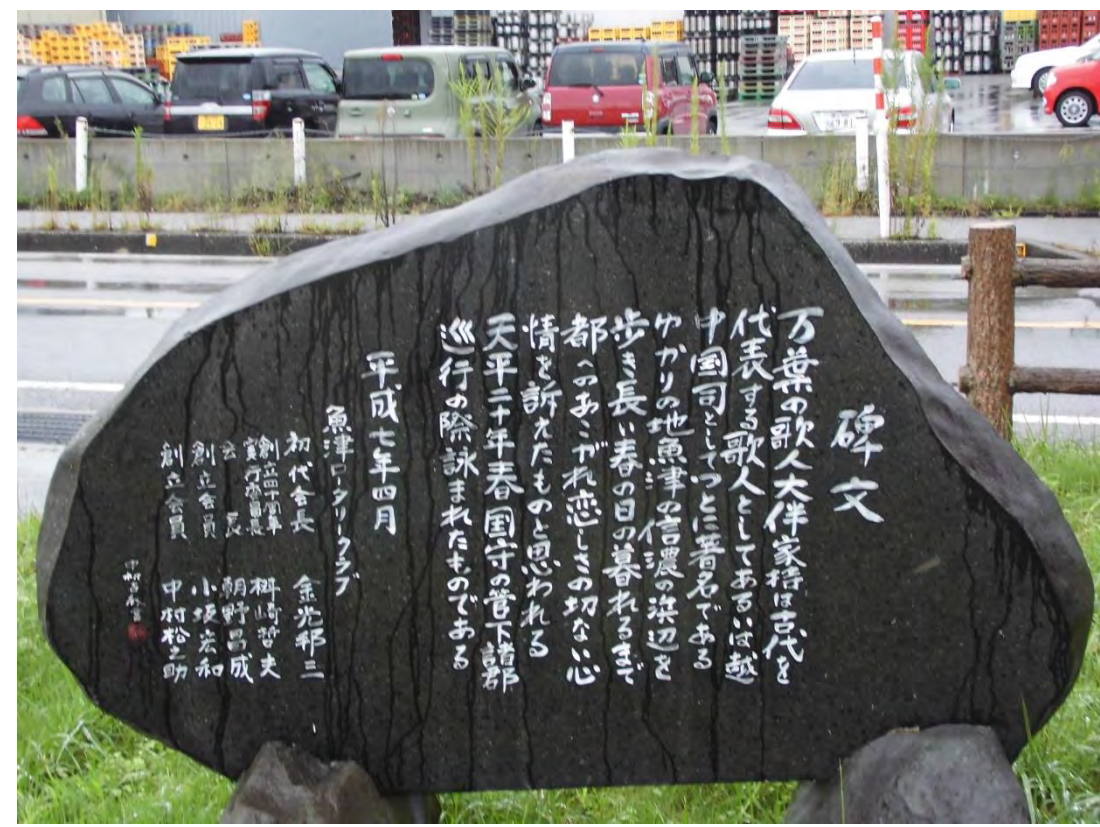 碑文
万葉の歌人大伴家持は古代を
代表する歌人としてあるいは越
中国司としてつとに著名である
ゆかりの地魚津の信濃の浜辺を
歩き長い春の日の暮れるまで
都へのあこがれ恋しさの切ない心
情を訴えたものと思われる
天平二十年春国守の管下諸郡
巡行の際詠まれたものである
平成七年四月
魚津ロータリークラブ
初代会長 金光邦三
創立四十周年
実行委員長 椥崎哲夫
会長 朝野昌成
創立会員 小坂宏和
創立会員 中村松之助